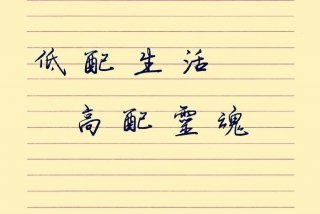 低配生活
高配靈魂